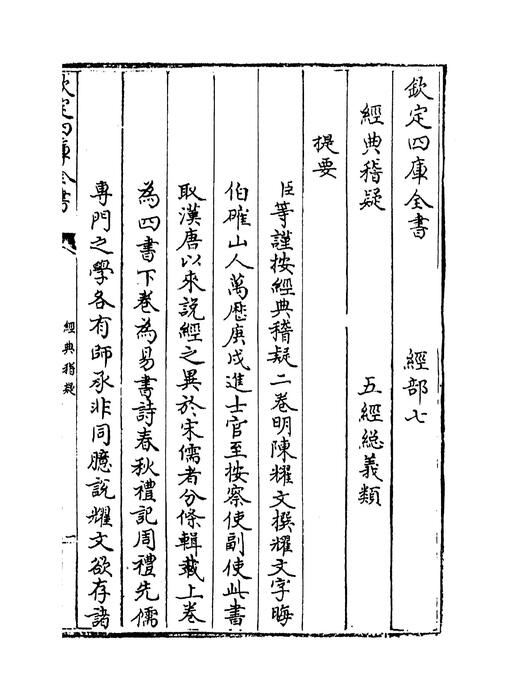 欽定四庫全書　經部七
經典稽疑　五經總義類
提要
臣等謹按經典稽疑二卷明陳耀文撰耀文字晦
伯確山人萬歴庚戌進士官至按察使副使此書
取漢唐以來說經之異於宋儒者分條輯載上卷
為四書下卷為易書詩春秋禮記周禮先儒
專門之學各有師承非同臆說耀文欲存諸
欽定四庫全書
經典稽疑
一